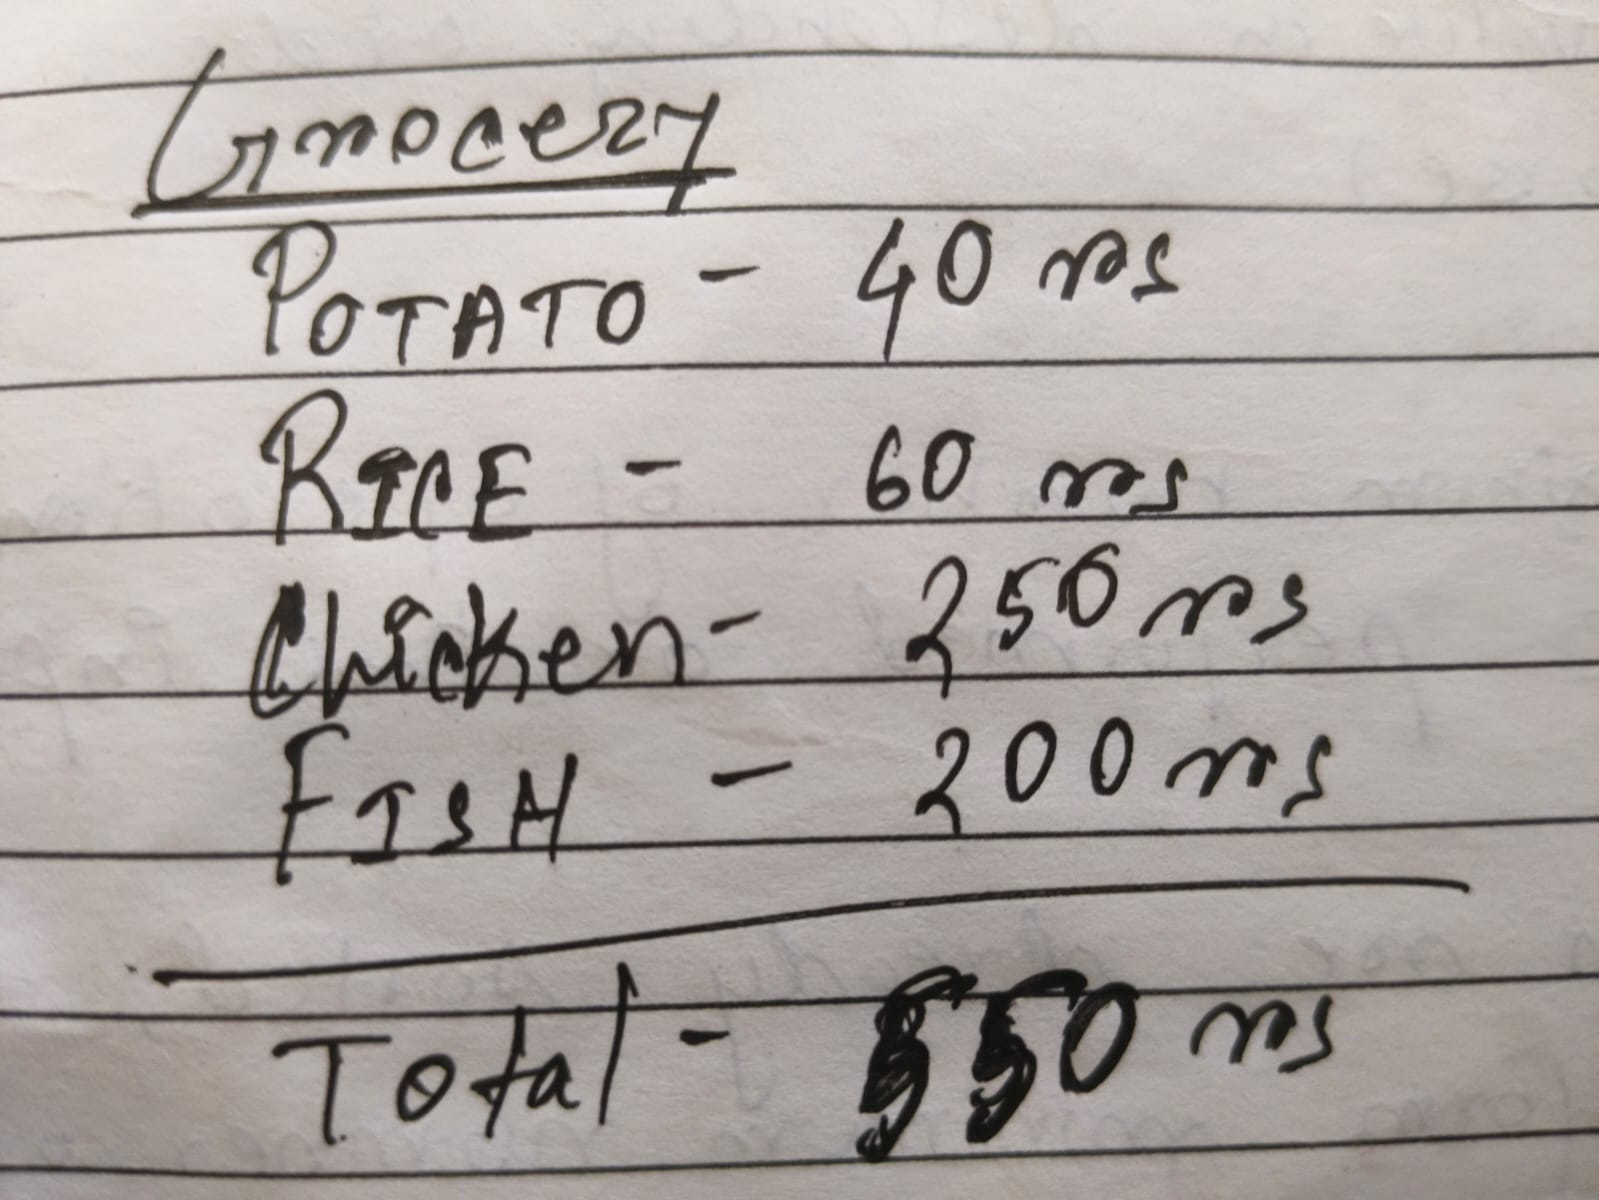 Grocery
POTATO - 40 rs
RICE - 60 rs
Chicken - 250 rs
FISH - 200 rs
Total - 550 rs